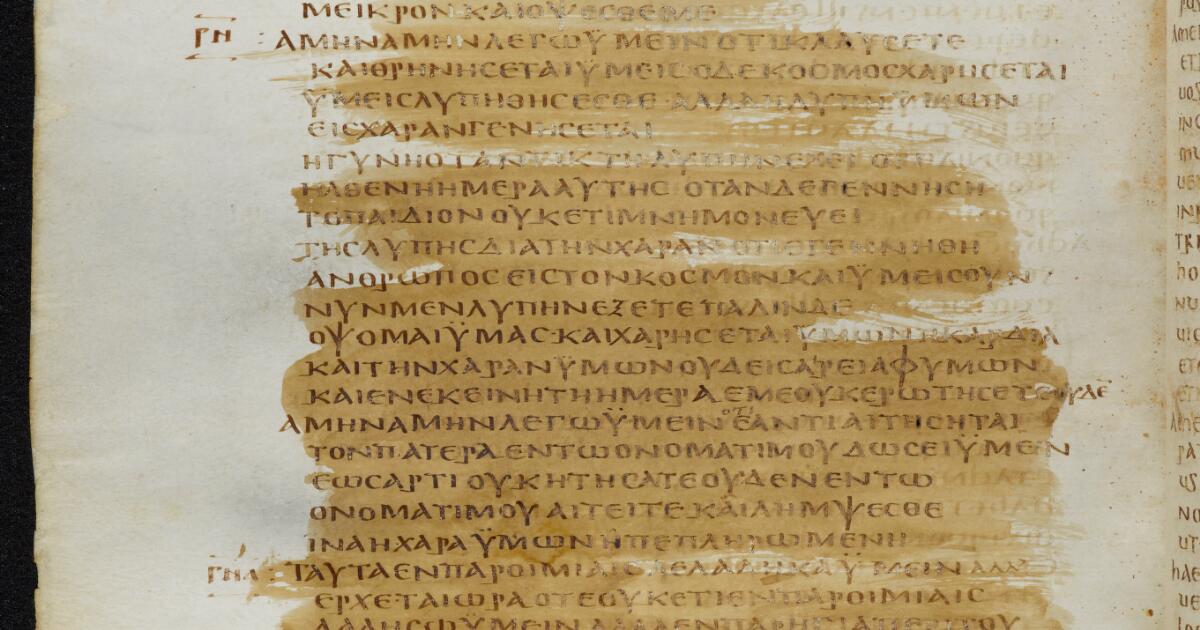 ΜΕΙΚΡΟΝ ΚΑΙ ΟΨΕΣΘΕ ΜΕ
ΓΗ ΑΜΗΝ ΑΜΗΝ ΛΕΓΩ ΫΜΕΙΝ ΟΤΙ ΚΛΑΥΣΕΤΕ
ΚΑΙ ΘΡΗΝΗΣΕΤΑΙ ΫΜΕΙΣ Ο ΔΕ ΚΟΣΜΟΣ ΧΑΡΗΣΕΤΑΙ
ΫΜΕΙΣ ΛΥΠΗΘΗΣΕΣΘΕ ΑΛΛΑ Η ΛΥΠΗ ΫΜΩΝ
ΕΙΣ ΧΑΡΑΝ ΓΕΝΗΣΕΤΑΙ
Η ΓΥΝΗ ΟΤΑΝ ΤΙΚΤΗ ΛΥΠΗΝ ΕΧΕΙ ΟΤΙ
ΗΛΘΕΝ Η ΗΜΕΡΑ ΑΥΤΗΣ ΟΤΑΝ ΔΕ ΓΕΝΝΗΣΗ
ΤΟ ΠΑΙΔΙΟΝ ΟΥΚΕΤΙ ΜΝΗΜΟΝΕΥΕΙ
ΤΗΣ ΛΥΠΗΣ ΔΙΑ ΤΗΝ ΧΑΡΑΝ ΟΤΙ ΕΓΕΝΝΗΘΗ
ΑΝΘΡΩΠΟΣ ΕΙΣ ΤΟΝ ΚΟΣΜΟΝ ΚΑΙ ΫΜΕΙΣ ΟΥΝ
ΝΥΝ ΜΕΝ ΛΥΠΗΝ ΕΞΕΤΕ ΠΑΛΙΝ ΔΕ
ΟΨΟΜΑΙ ΫΜΑΣ ΚΑΙ ΧΑΡΗΣΕΤΑΙ ΫΜΩΝ Η ΚΑΡΔΙΑ
ΚΑΙ ΤΗΝ ΧΑΡΑΝ ΫΜΩΝ ΟΥΔΕΙΣ ΑΡΕΙ ΑΦ ΥΜΩΝ
ΚΑΙ ΕΝ ΕΚΕΙΝΗ ΤΗ ΗΜΕΡΑ ΕΜΕ ΟΥΚ ΕΡΩΤΗΣΕΤΕ ΟΥΔΕ
ΑΜΗΝ ΑΜΗΝ ΛΕΓΩ ΫΜΕΙΝ ΟΤΙ ΕΑΝ ΤΙ ΑΙΤΗΣΗΤΑΙ
ΤΟΝ ΠΑΤΕΡΑ ΕΝ ΤΩ ΟΝΟΜΑΤΙ ΜΟΥ ΔΩΣΕΙ ΫΜΕΙΝ
ΕΩΣ ΑΡΤΙ ΟΥΚ ΗΤΗΣΑΤΕ ΟΥΔΕΝ ΕΝ ΤΩ
ΟΝΟΜΑΤΙ ΜΟΥ ΑΙΤΕΙΤΕ ΚΑΙ ΛΗΜΨΕΣΘΕ
ΪΝΑ Η ΧΑΡΑ ΫΜΩΝ Η ΠΕΠΛΗΡΩΜΕΝΗ
ΤΑΥΤΑ ΕΝ ΠΑΡΟΙΜΙΑΙΣ ΛΕΛΑΛΗΚΑ ΫΜΕΙΝ ΑΛΛ
ΕΡΧΕΤΑΙ ΩΡΑ ΟΤΕ ΟΥΚΕΤΙ ΕΝ ΠΑΡΟΙΜΙΑΙΣ
ΛΑΛΗΣΩ ΫΜΕΙΝ ΑΛΛΑ ΕΝ ΠΑΡΗΣΙΑ